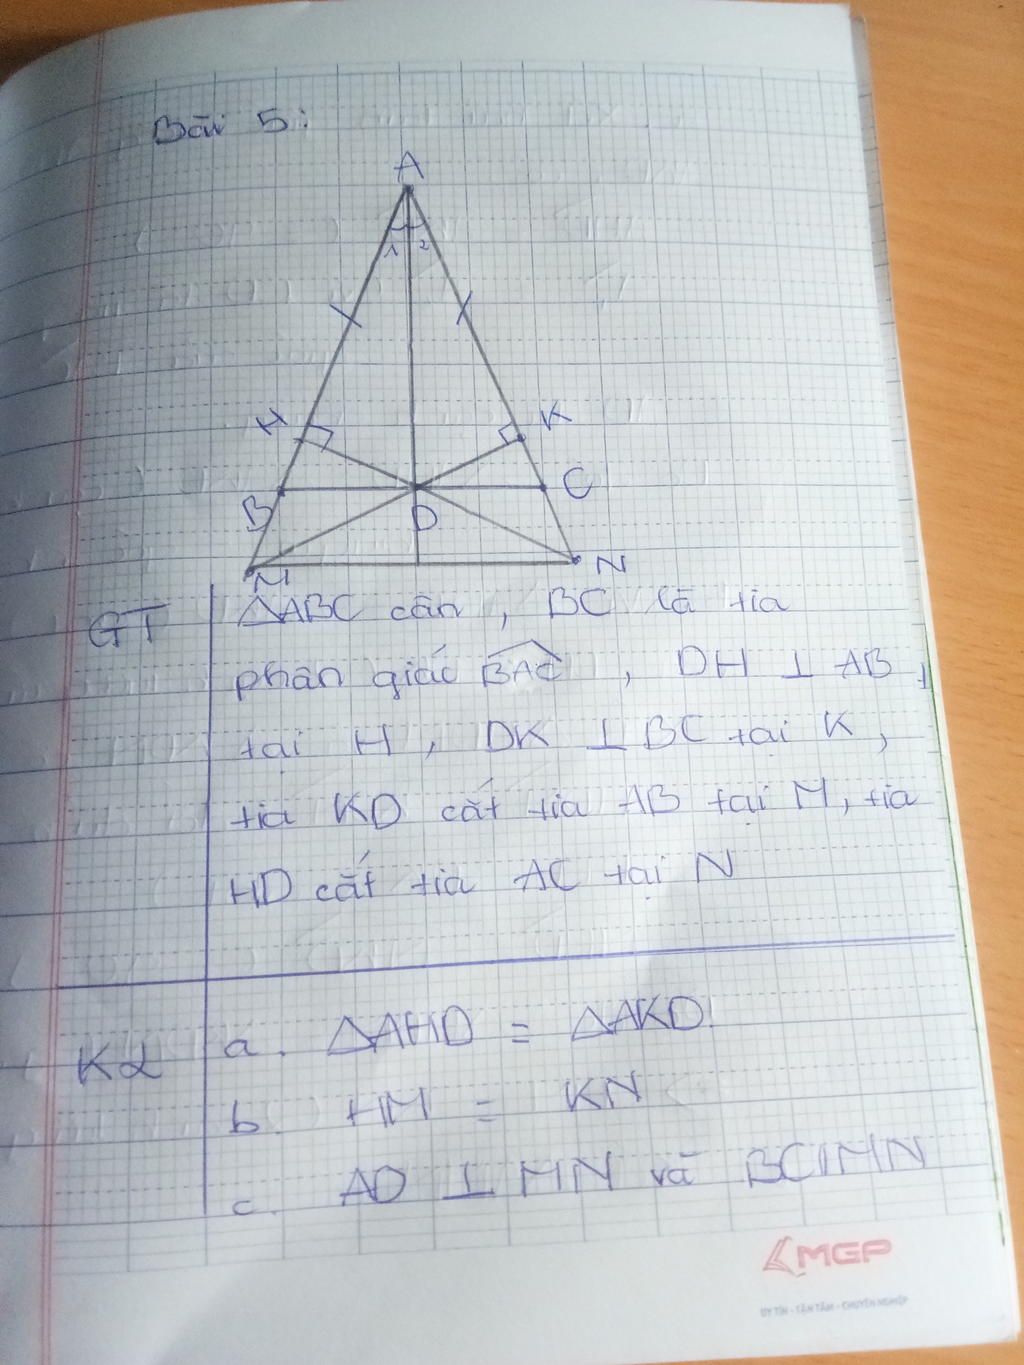 Bài 5:
A
1 2
H K
B D C
M N
GT ΔABC cân, BC là tia
phân giác BAC, DH ⊥ AB,
tại H, DK ⊥ BC tại K,
tia KD cắt tia AB tại M, tia
HD cắt tia AC tại N
KL a. ΔAHD = ΔAKD.
b. HM = KN
c. AD ⊥ MN và BC//MN
MGP
UY TÍN - TẬN TÂM - CHUYÊN NGHIỆP